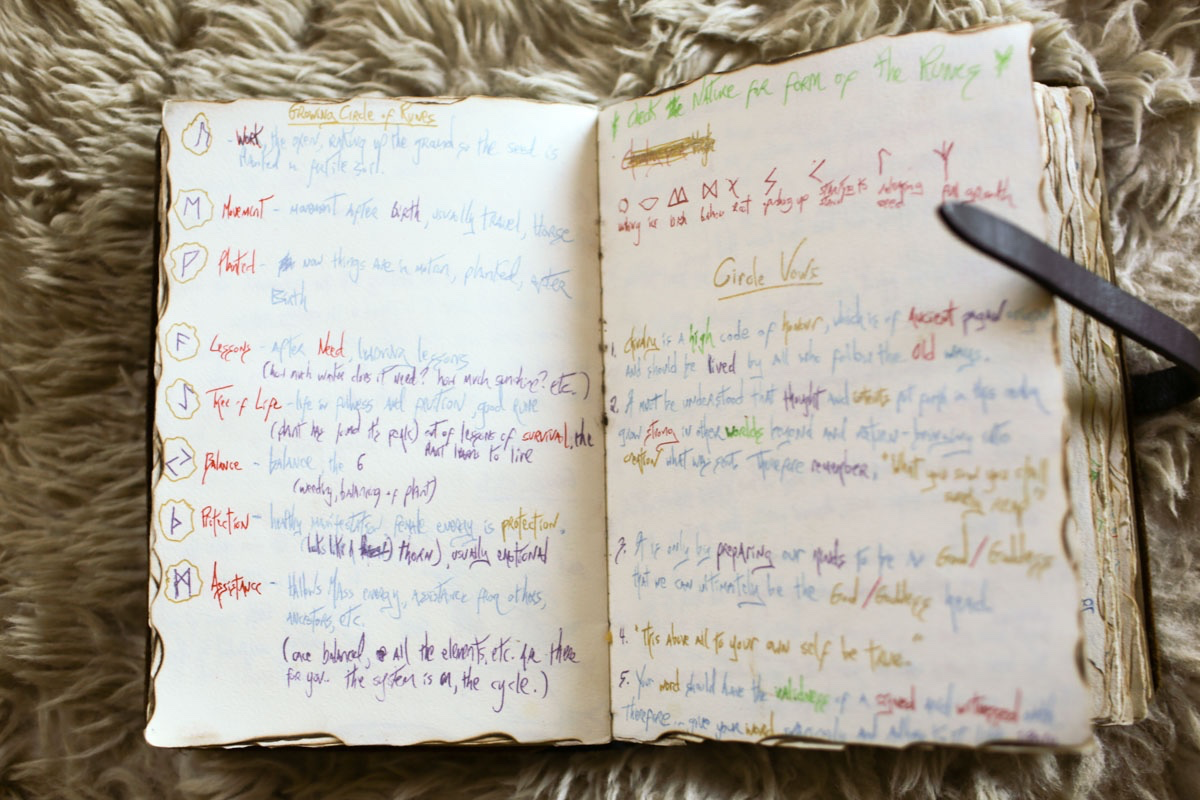 Growing Circle of Runes
ᚢ - Work, the oxen, raking up the ground so the seed is
planted in fertile soil.
ᛖ Movement - movement after birth, usually travel, Horse
ᚹ Planted - now things are in motion, planted, after
Birth
ᚨ Lessons - after Need, learning lessons
(how much water does it need? how much sunshine? etc.)
ᛇ Tree of Life - life in fullness and fruition, good rune
(plant has found its peak) out of lessons of survival, the
plant learns to live
ᛃ Balance - balance, the 6
(weather, balancing of plant)
ᚦ Protection - healthy manifestation female energy is protection.
(looks like a thorn), usually emotional
ᛗ Assistance - Hallows Mass energy, assistance from others,
ancestors, etc.
(once balanced, all the elements, etc. are there
for you.. the system is on, the cycle.)
* Check the Nature for form of the Runes *
full growth
Circle Vows
1. Chivalry is a high code of honour, which is of Ancient pagan origin
and should be lived by all who follow the Old ways.
2. It must be understood that thought and intents put forth in this realm
grow strong in other worlds beyond and return - bringing into
creation what was sent. Therefore remember, "What you sow you shall
surely reap"
3. It is only by preparing our minds to be as God/Goddess
that we can ultimately be the God/Goddess head.
4. "This above all to your own self be true."
5. Your word should have the validness of a signed and witnessed
Therefore... give your word